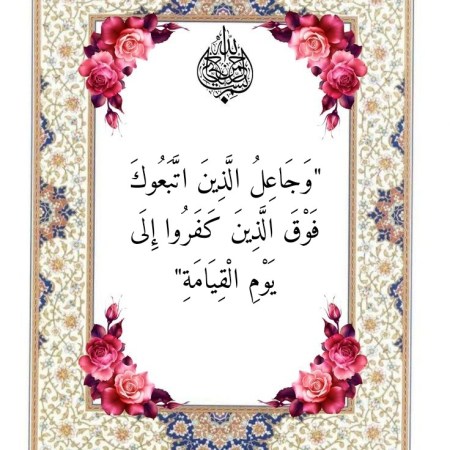 بسم الله الرحمن الرحيم
"وَجَاعِلُ الَّذِينَ اتَّبَعُوكَ
فَوْقَ الَّذِينَ كَفَرُوا إِلَى
يَوْمِ الْقِيَامَةِ"